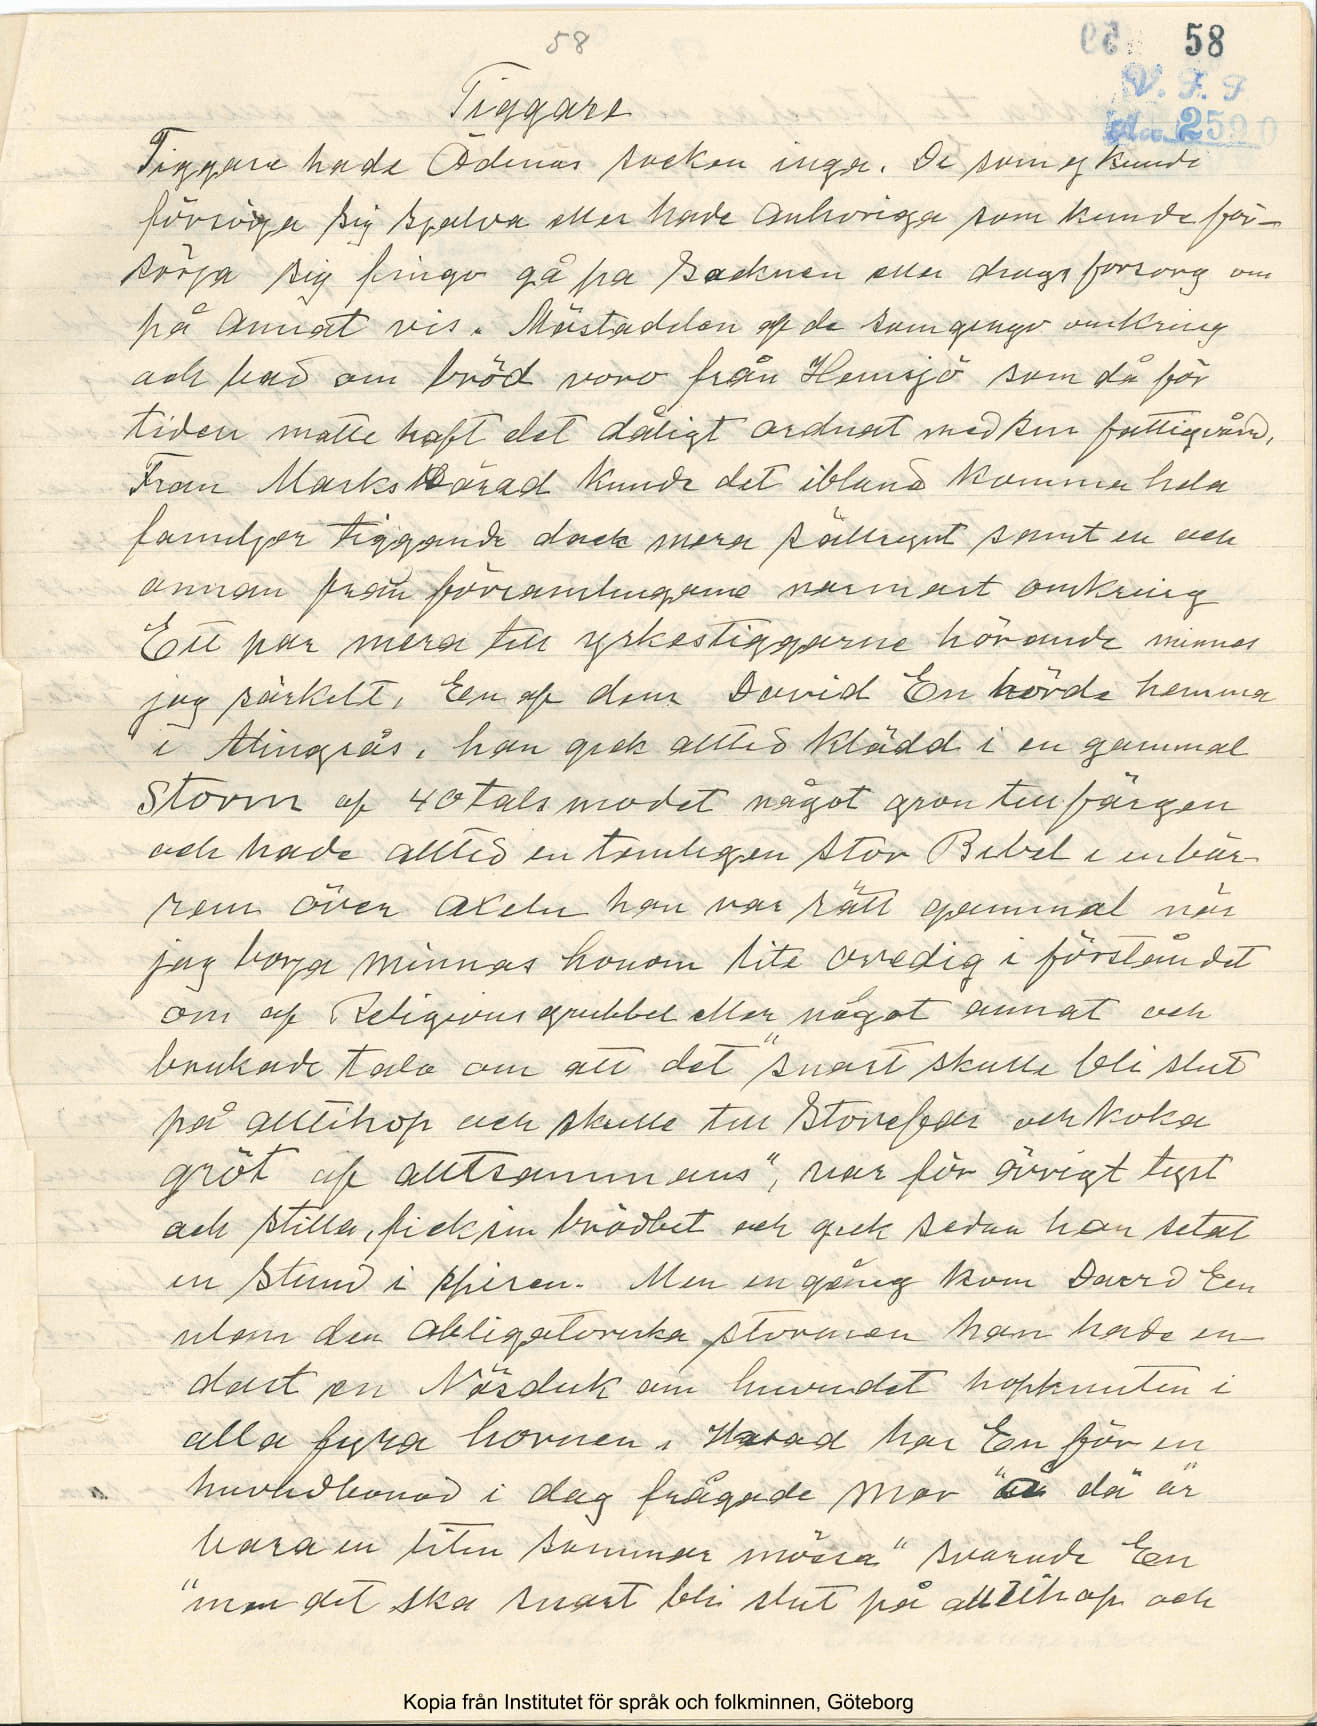 58
58
V. F. F
Tiggare
Tiggare hade Ödenäs socken inga. De som ej kunde
försörja sig sjelva eller hade anhöriga som kunde för-
sörja sig fingo gå på Socknen eller drogs försorg om
på annat vis. Mästadelen af de som gengo omkring
och bad om bröd voro från Hemsjö som då för
tiden matte haft det dåligt ordnat med sin fattigvård,
Fran Marks Härad kunde det ibland komma hela
familjer tiggande dock mera sällsynt samt en och
annan från församlingarne närmast omkring
Ett par mera till yrkestiggarne hörande minnes
jag särkilt, En af dem David En hörde hemma
i Alingsås, han gick alltid klädd i en gammal
Storm af 40tals modet något gron till färgen
och hade alltid en temligen stor Bibel i en bär
rem över axeln han var rätt gammal när
jag borja minnas honom lite oredig i förståndet
om af Religions grubbel eller något annat och
brukade tala om att det "snart skulle bli slut
på alltihop och skulle till Storefar och koka
gröt af alltsammans", var för övrigt tyst
och stilla, fick sin brödbit och gick sedan han setat
en Stund i spisen. Men en gång kom David En
utom den obligatoriska stormen han hade en
dast en Näsduk om huvudet hopknuten i
alla fyra hornen, Havad har En för en
huvudbonad i dag frågade Mor "åå dä är
bara en liten sommar mössa" svarade En
"men det ska snart bli slut på alltihop och
Kopia från Institutet för språk och folkminnen, Göteborg